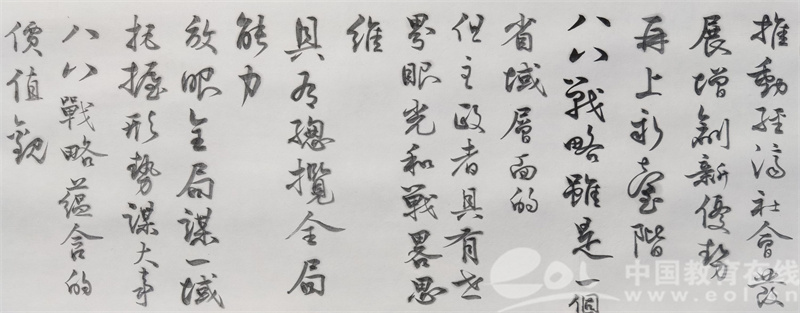 推動經濟社會發
展增創新優勢
再上新臺階
八八戰略雖是一個
省域層面的
但主政者具有世
界眼光和戰略思
維
具有總攬全局
能力
放眼全局謀一域
把握形勢謀大事
八八戰略蘊含的
價值觀
中国教育在线
www.eol.cn
eol